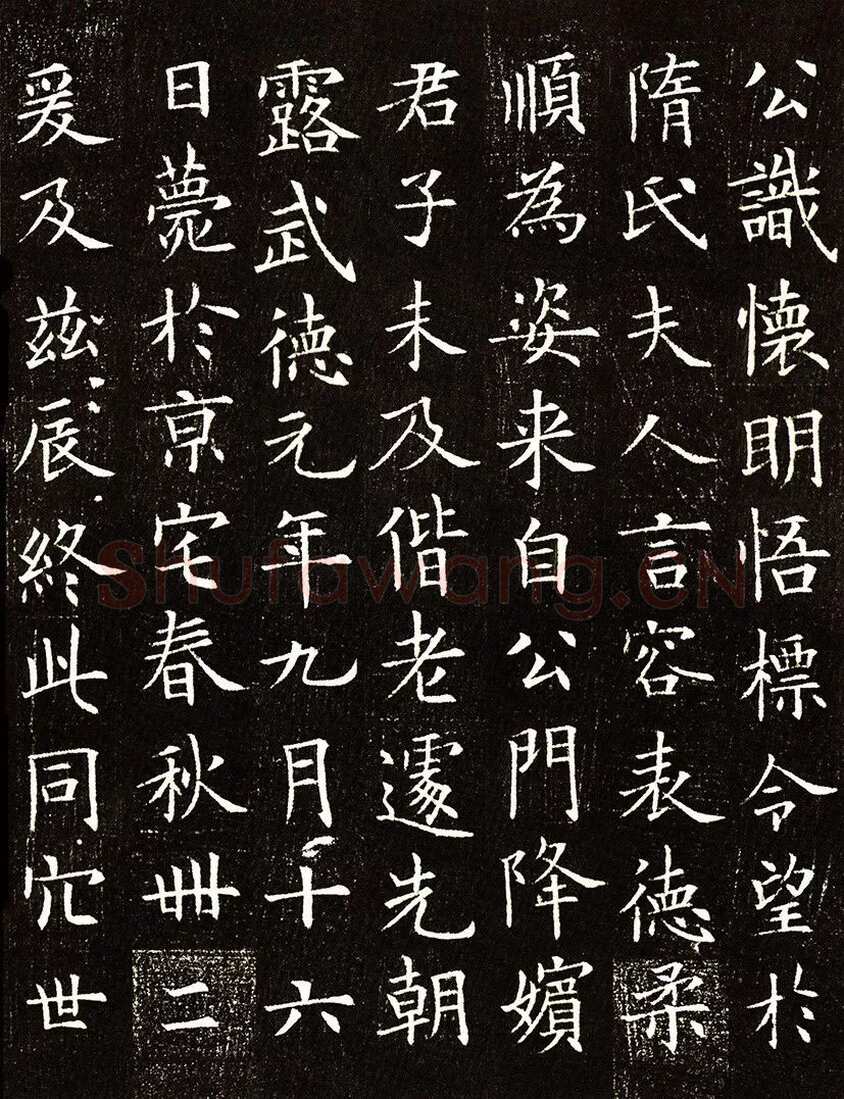 公識懷明悟標令望於
隋氏夫人言容表德柔
順為姿来自公門降嬪
君子未及偕老遽先朝
露武德元年九月十六
日薨於京宅春秋卌二
爰及茲辰終此同穴世
Shufawang.CN